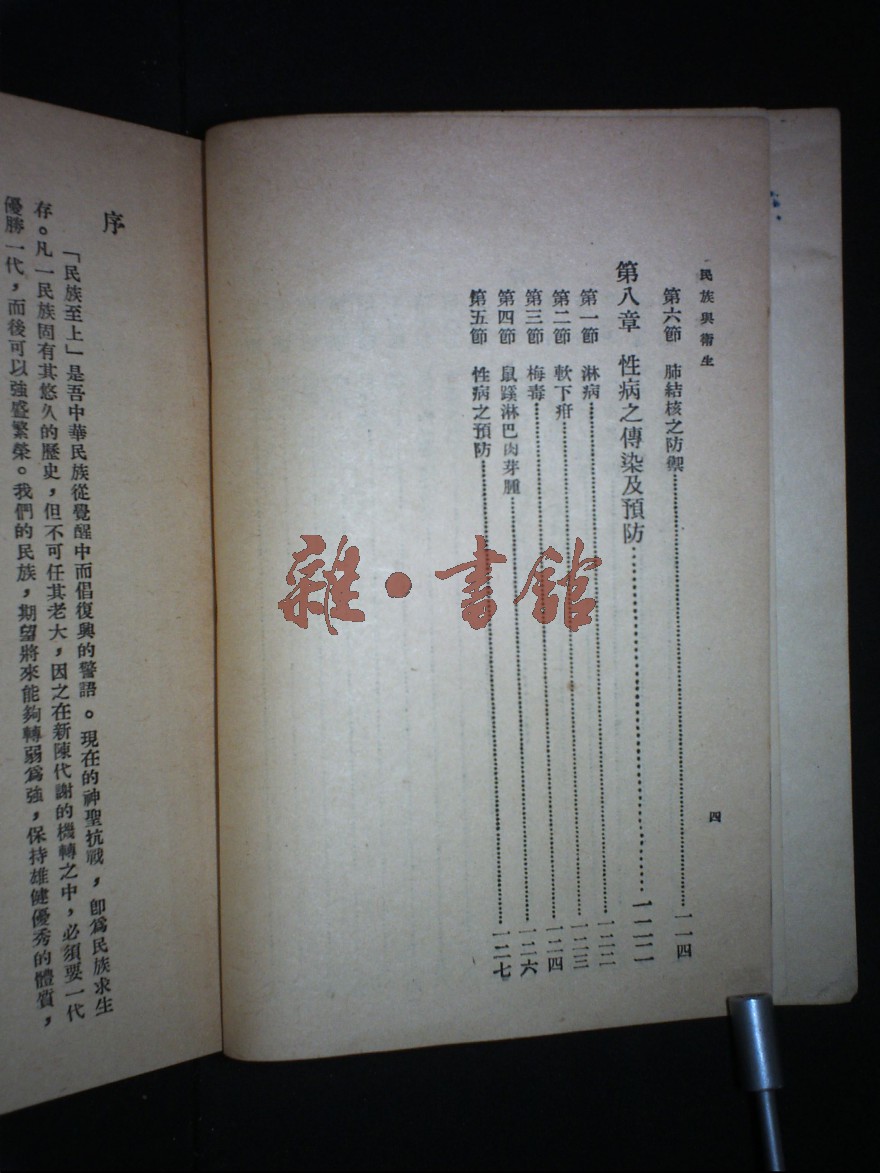 民族與衛生
第六節 肺結核之防禦……一一四
第八章 性病之傳染及預防……一二二
第一節 淋病……一二二
第二節 軟下疳……一二三
第三節 梅毒……一二四
第四節 鼠蹊淋巴肉芽腫……一二六
第五節 性病之預防……一二七
四
序
「民族至上」是吾中華民族從覺醒中而倡復興的警語。現在的神聖抗戰,卽爲民族求生
存。凡一民族固有其悠久的歷史,但不可任其老大,因之在新陳代謝的機轉之中,必須要一代
優勝一代,而後可以強盛繁榮。我們的民族,期望將來能夠轉弱爲強,保持雄健優秀的體質,
雜·書館